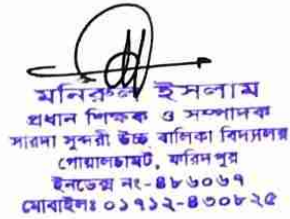 মনিরুল ইসলাম
প্রধান শিক্ষক ও সম্পাদক
সারদা সুন্দরী উচ্চ বালিকা বিদ্যালয়
গোয়ালচামট, ফরিদপুর
ইনডেক্স নং-৪৮৬০৬৭
মোবাইলঃ ০১৭১২-৪৩০৮২৫